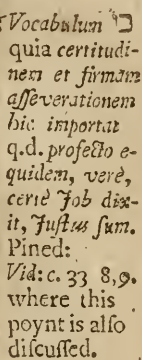 Vocabulum כי
quia certitudi-
nem et firmam
asseverationem
hic importat
q.d. profecto e-
quidem, verè,
certè Job dix-
it, Justus sum.
Pined:
Vid: c. 33 8,9.
where this
poynt is also
discussed.